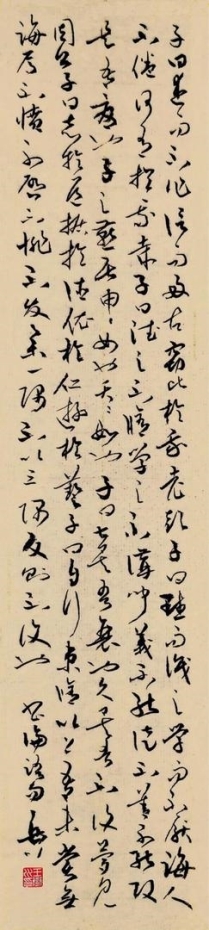 子曰述而不作信而好古竊比於我老彭子曰默而識之學而不厭誨人
不倦何有於我哉子曰德之不脩學之不講聞義不能徙不善不能改
是吾憂也子之燕居申々如也夭々如也子曰甚矣吾衰也久矣吾不復夢見
周公子曰志於道據於德依於仁游於藝子曰自行束脩以上吾未嘗無
誨焉不憤不啟不悱不發舉一隅不以三隅反則不復也 書論語句